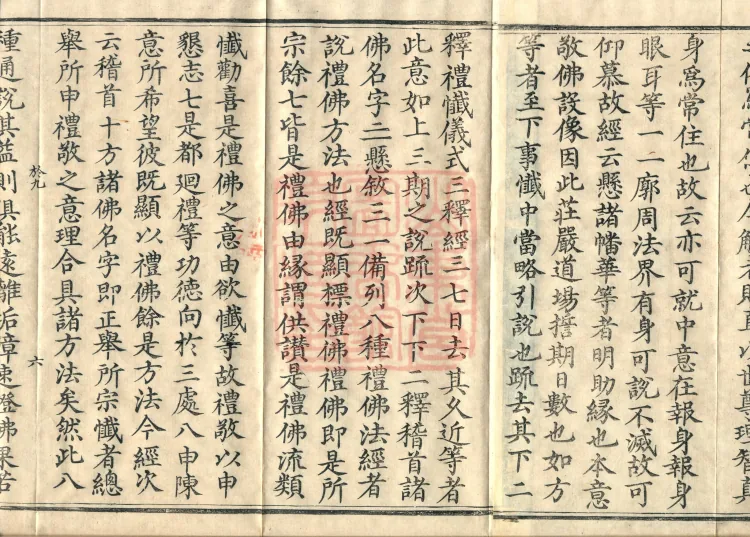 身為常住也故云亦可就中意在報身報身
眼耳等一二廓周法界有身可說不滅故可
仰慕故經云懸諸幡華等者明助緣也本意
敬佛設像因此莊嚴道場擔期日數也如方
等者至下事懺中當略引說也䟽去其下二
釋禮懺儀式三釋經三七日去其久近等者
此意如上三期之說䟽次下下二釋稽首諸
佛名字二懸敘三一備列八種禮佛法經者
說禮佛方法也經既顯標禮佛禮佛即是所
宗餘七皆是禮佛由緣謂供讚是禮佛流類
懺勸喜是禮佛之意由欲懺等故禮敬以申
懇志七是都迴禮等功德向於三處八申陳
意所希望彼既顯以禮佛餘是方法今經次
云稽首十方諸佛名字即正舉所宗懺者總
舉所申禮敬之意理合具諸方法矣然此八
於九
六
種通說其益則俱能遠離垢障速證佛果若